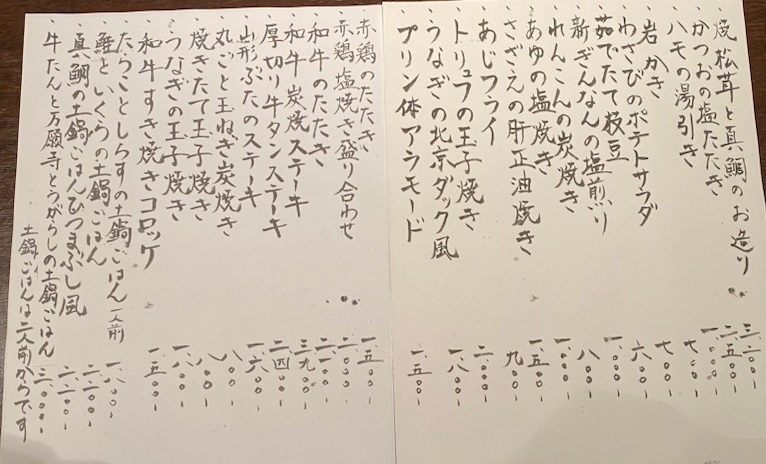 ・焼松茸と真鯛のお造り 三二〇〇-
・かつおの塩たたき 二五〇〇-
・ハモの湯引き 一〇〇〇-
・岩かき 七〇〇-
・わさびのポテトサラダ 七〇〇-
・茹でたて枝豆 六〇〇-
・新ぎんなんの塩煎り 一〇〇〇-
・れんこんの炭焼き 八〇〇-
・あゆの塩焼き 一〇〇〇-
・さざえの肝正油焼き 一五〇〇-
・あじフライ 九〇〇-
・トリュフの玉子焼き 二〇〇〇-
・うなぎの北京ダック風 一八〇〇-
・プリン体アラモード 一五〇〇-
・赤鶏のたたき 一五〇〇-
・赤鶏塩焼き盛り合わせ 二〇〇〇-
・和牛のたたき 二一〇〇-
・和牛炭焼ステーキ 三九〇〇-
・厚切り牛タンステーキ 二四〇〇-
・山形ぶたのステーキ 一六〇〇-
・丸ごと玉ねぎ炭焼き 八〇〇-
・焼きたて玉子焼き 八〇〇-
・うなぎの玉子焼き 一八〇〇-
・和牛すき焼きコロッケ 一五〇〇-
・たらことしらすの土鍋ごはん 一人前 一八〇〇-
・鮭といくらの土鍋ごはん 二二〇〇-
・真鯛の土鍋ごはんひつまぶし風 二二〇〇-
・牛たんと万願寺とうがらしの土鍋ごはん 三〇〇〇-
土鍋ごはんは二人前からです